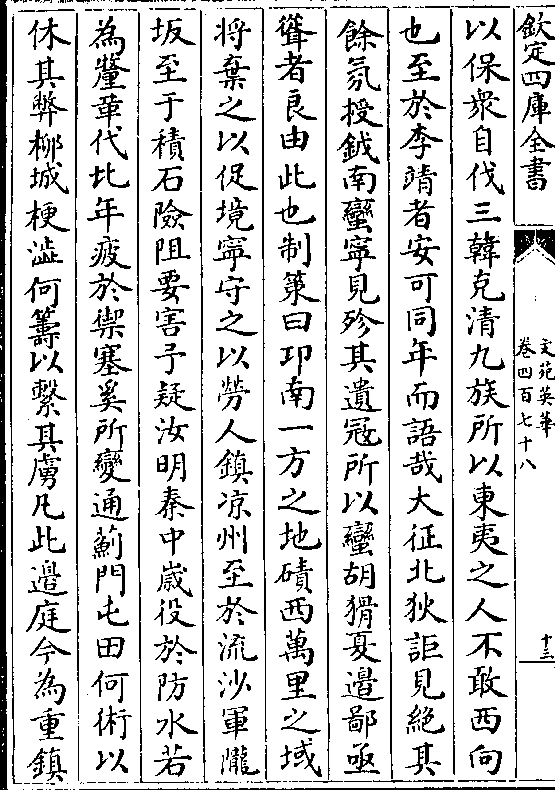 欽定四庫全書
文苑英華
卷四百七十八
十三
以保衆自伐三韓克清九族所以東夷之人不敢西向
也至於李靖者安可同年而語哉大征北狄詎見絶其
餘氛授鉞南蠻寧見殄其遺冦所以蠻胡猾夏邉鄙亟
聳者良由此也制策曰卭南一方之地磧西萬里之域
将棄之以促境寧守之以勞人鎮凉州至於流沙軍隴
坂至于積石險阻要害予疑汝明秦中歳役於防水若
為釐革代北年疲於禦塞奚所變通薊門屯田何術以
休其弊柳城梗澁何籌以繫其虜凡此邉庭今為重鎮